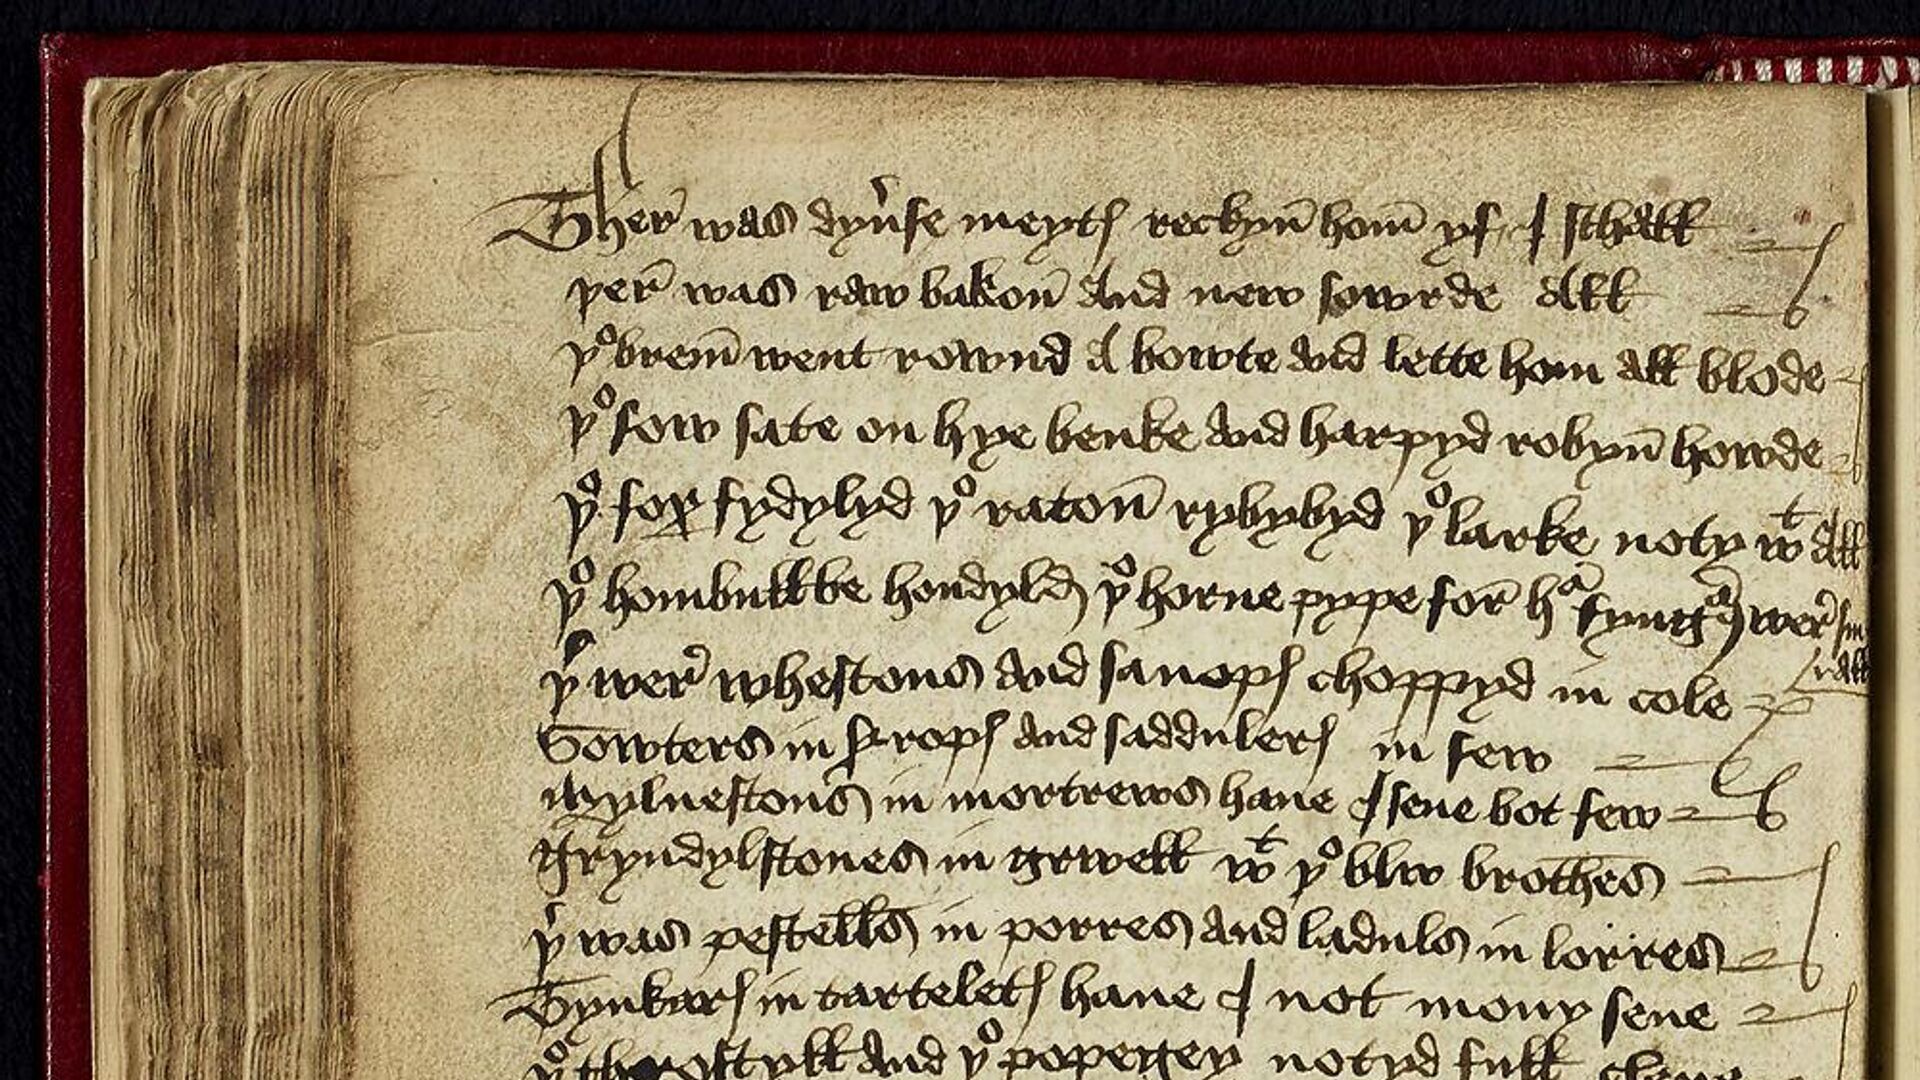 Ther was dyuerse meytes reckyn hom yf I schall
þer was raw bakon And new sowrde All
þe brem went rownd A bowte and lette hom all blode
þe sow sate on hye benke and harpyd robyn howde
þe fox fydylyd þe raton rybybyd þe larke noty wt All
þe hombullbe hondyld þe horne pype for har fyngars wer sm
all
þer wer whestons and sanops choppyd in cole
Sowters in syrops and saddulers in sew
Mylnestons in mortrews haue I sene bot few
Gryndylstones in grwell wt þe blw brothes
þer was pestells in porres and laduls in lorres
Tynkars in tartelets haue I not mony sene
þe throstyll and þe popegey notyd full clene